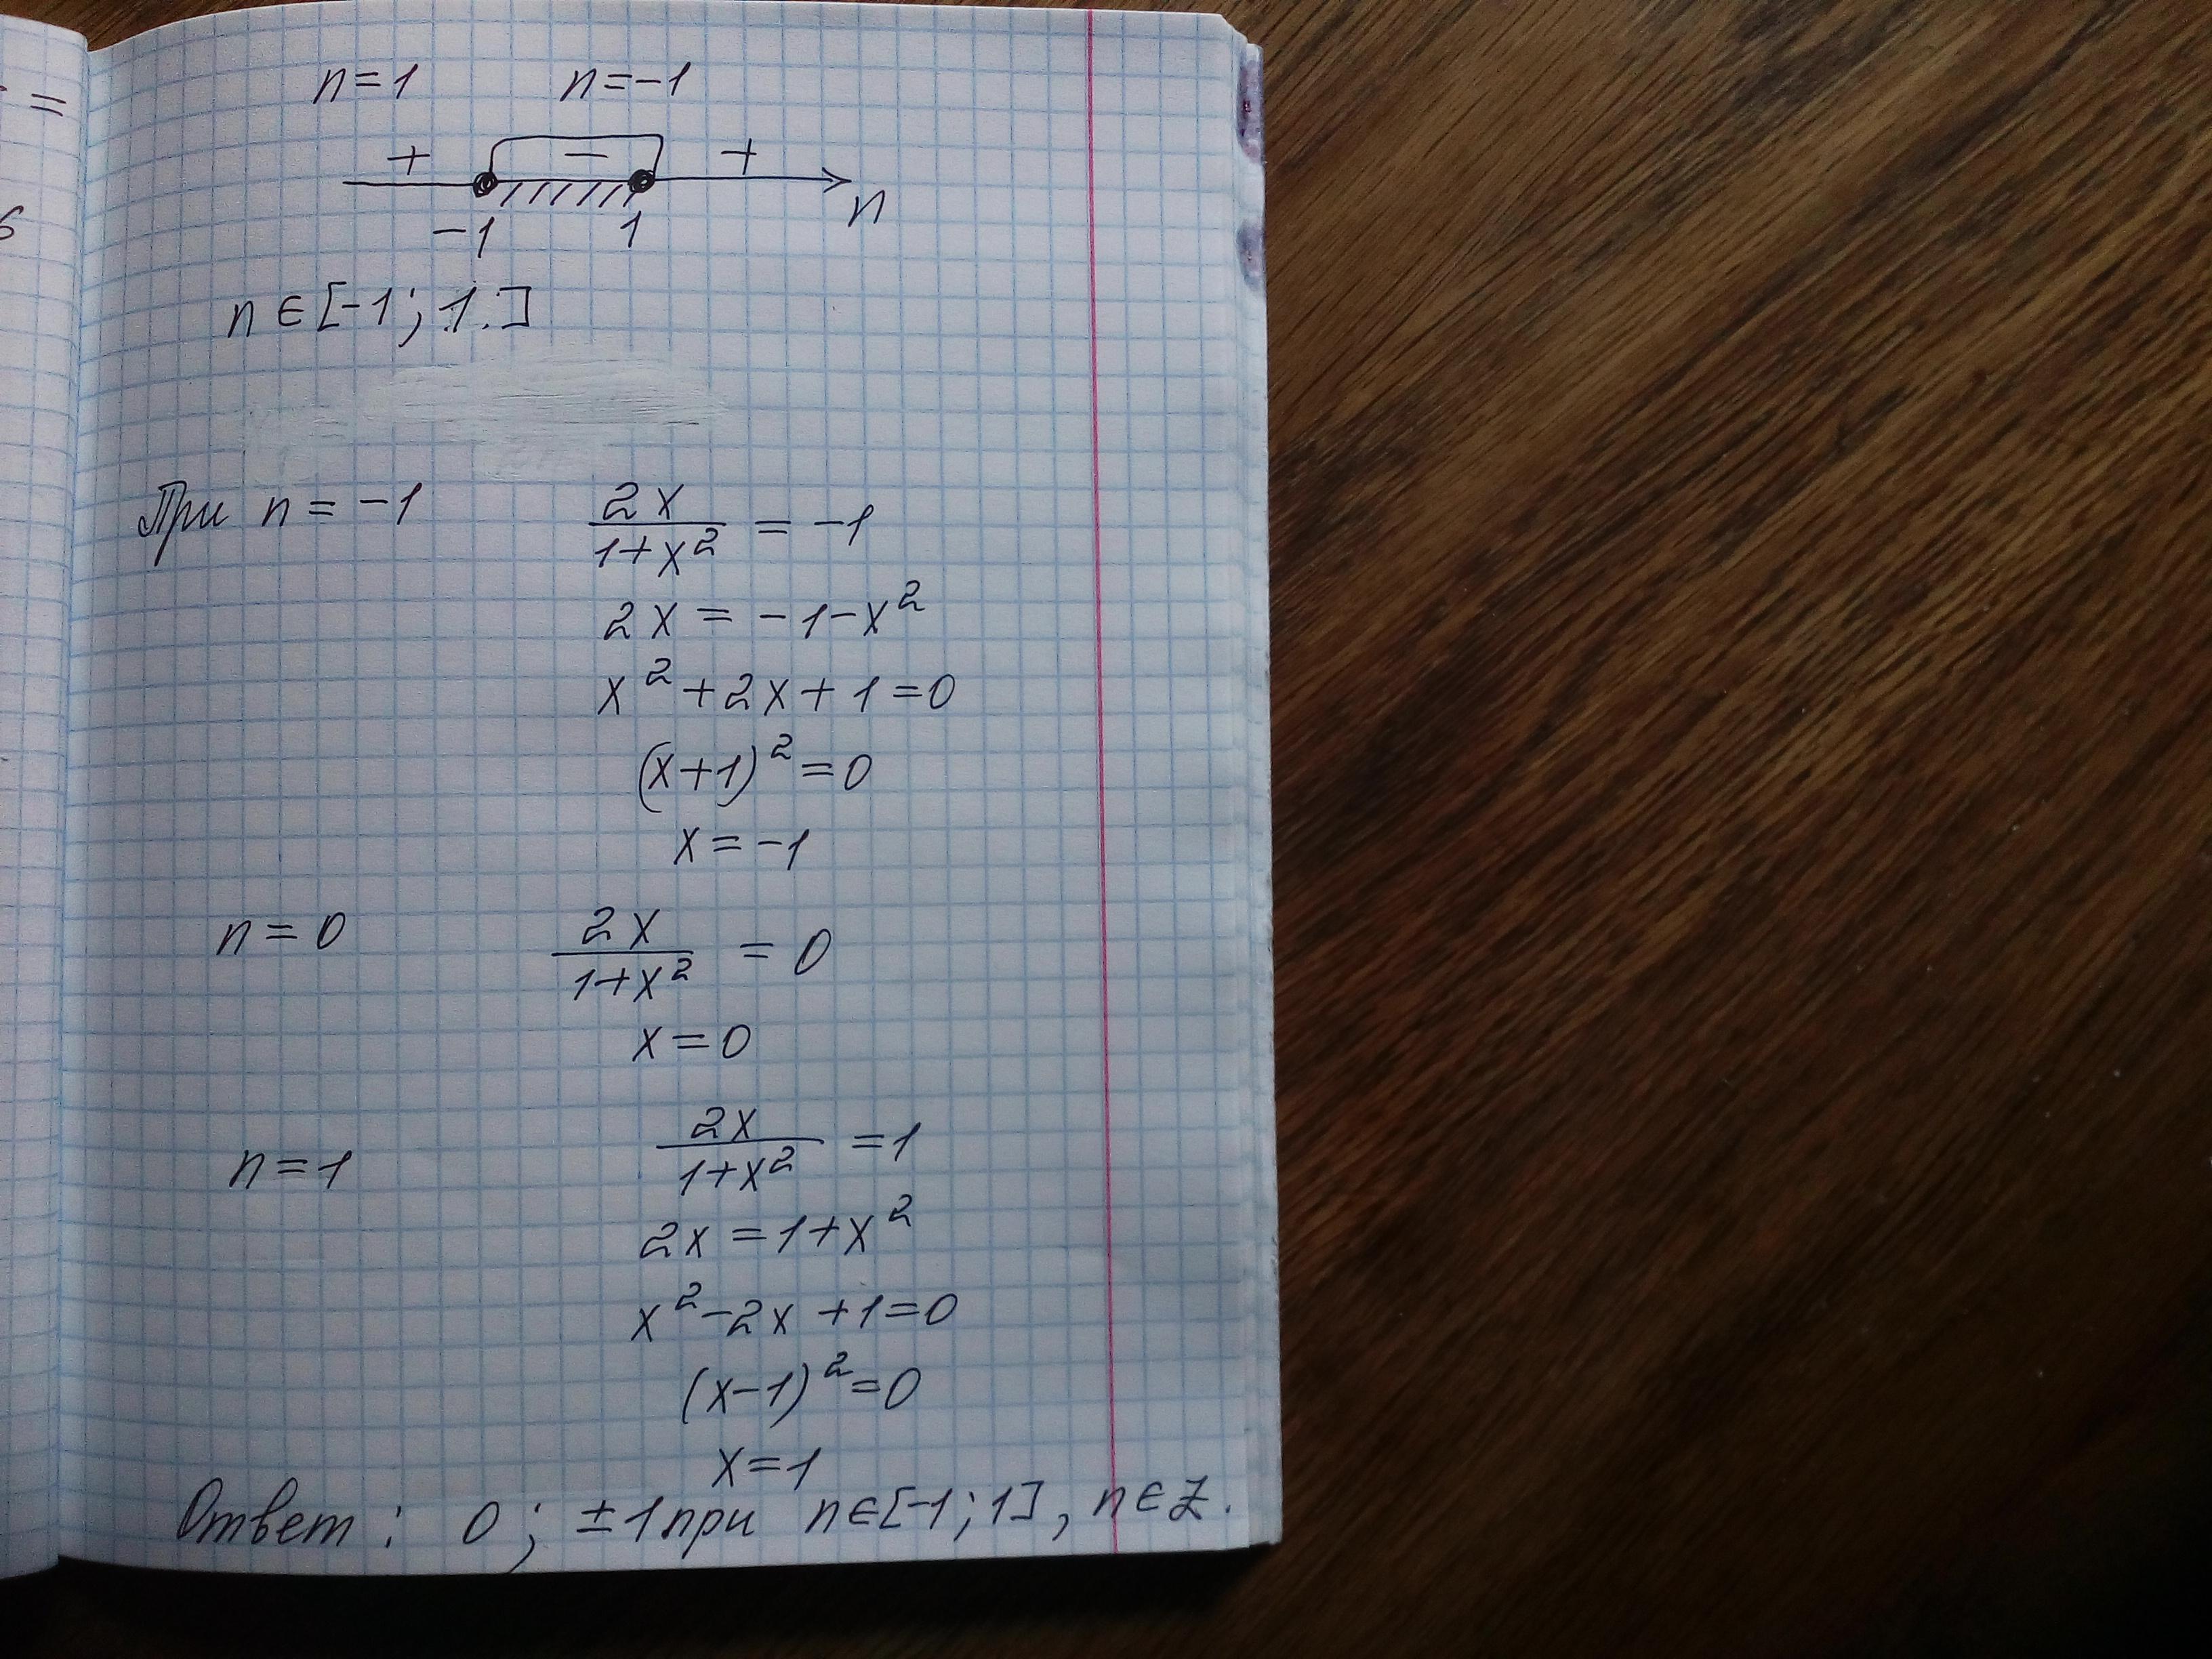 =
6
n=1 n=-1
+ - +
-1 1 n
n∈[-1; 1.]
При n = -1 2x/(1+x²) = -1
2x = -1-x²
x²+2x+1=0
(x+1)²=0
x=-1
n=0 2x/(1+x²) = 0
x=0
n=1 2x/(1+x²) =1
2x=1+x²
x²-2x+1=0
(x-1)²=0
x=1
Ответ: 0; ±1 при n∈[-1;1], n∈Z.